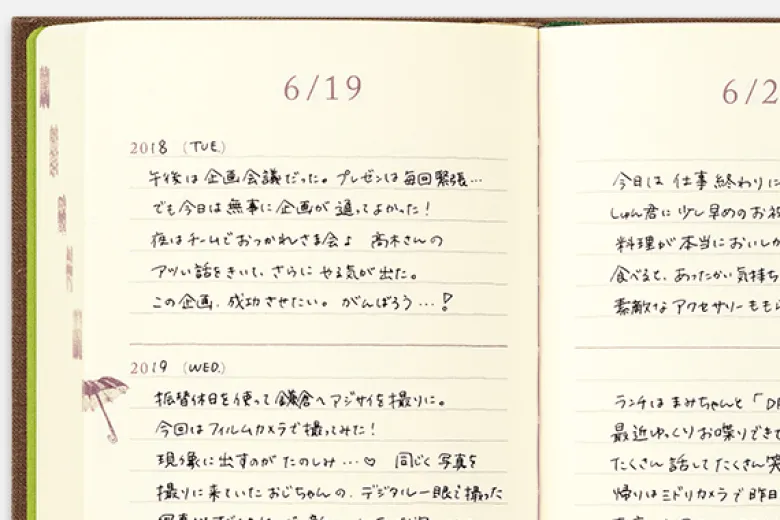 6/19
2018 (TUE.)
午後は企画会議だった。プレゼンは毎回緊張…
でも今日は無事に企画が通ってよかった!
夜はチームでおつかれさま会♪ 高木さんの
アツい話をきいて、さらにやる気が出た。
この企画、成功させたい。がんばろう…!
2019 (WED.)
振替休日を使って鎌倉へアジサイを撮りに。
今回はフィルムカメラで撮ってみた!
現像に出すのがたのしみ…♡ 同じく写真を
撮りに来ていたおじちゃんの、デジタル一眼で撮った
6/2
今日は仕事終わりに
しゅん君に少し早めのお祝
料理が本当においしか
食べると、あったかい気持ち
素敵なアクセサリーももら
ランチはまみちゃんと「D
最近ゆっくりお喋りできて
たくさん話してたくさん笑
帰りはミドリカメラで昨日